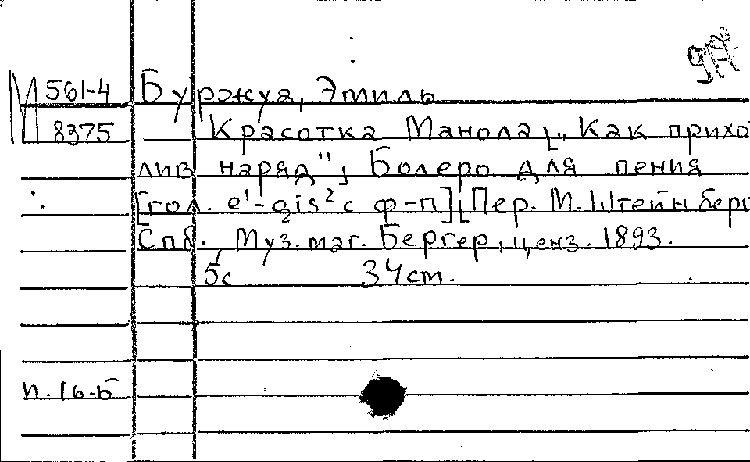 М 561-4
8375
Буржуа, Эмиль
Красотка Манола [„Как прихо
лив наряд"]. Болеро для пения
[гол. e¹-gis² с ф-п] [Пер. М. Штейнберг
Спб. Муз. маг. Бергер, ценз. 1893.
5с 34 cm.
п. 16-Б